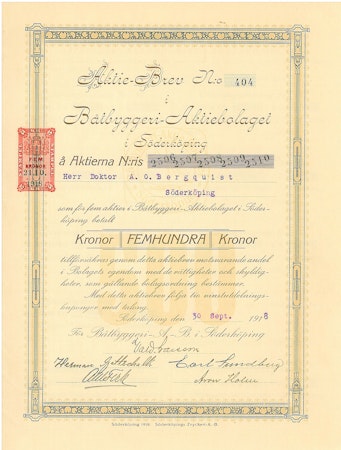 Aktie-Brev N:o 404
i
Båtbyggeri-Aktiebolaget
i Söderköping
å Aktierna N:ris 2506, 2507, 2508, 2509, 2510
Herr Doktor A. G. Bergquist
Söderköping
som för fem aktier i Båtbyggeri-Aktiebolaget i Söder-
köping betalt
Kronor FEMHUNDRA Kronor
tillförsäkras genom detta aktiebrev motsvarande andel
i Bolagets egendom med de rättigheter och skyldig-
heter, som gällande bolagsordning bestämmer.
Med detta aktiebrev följa tio vinstutdelnings-
kuponger med talong.
Söderköping den 30 Sept. 1918
För Båtbyggeri-A-B i Söderköping
Herman
Carl Sundberg
Aron Holm
FEM
KRONOR
21.10.
1918
Söderköping 1918. Söderköpings Tryckeri-A.-B.